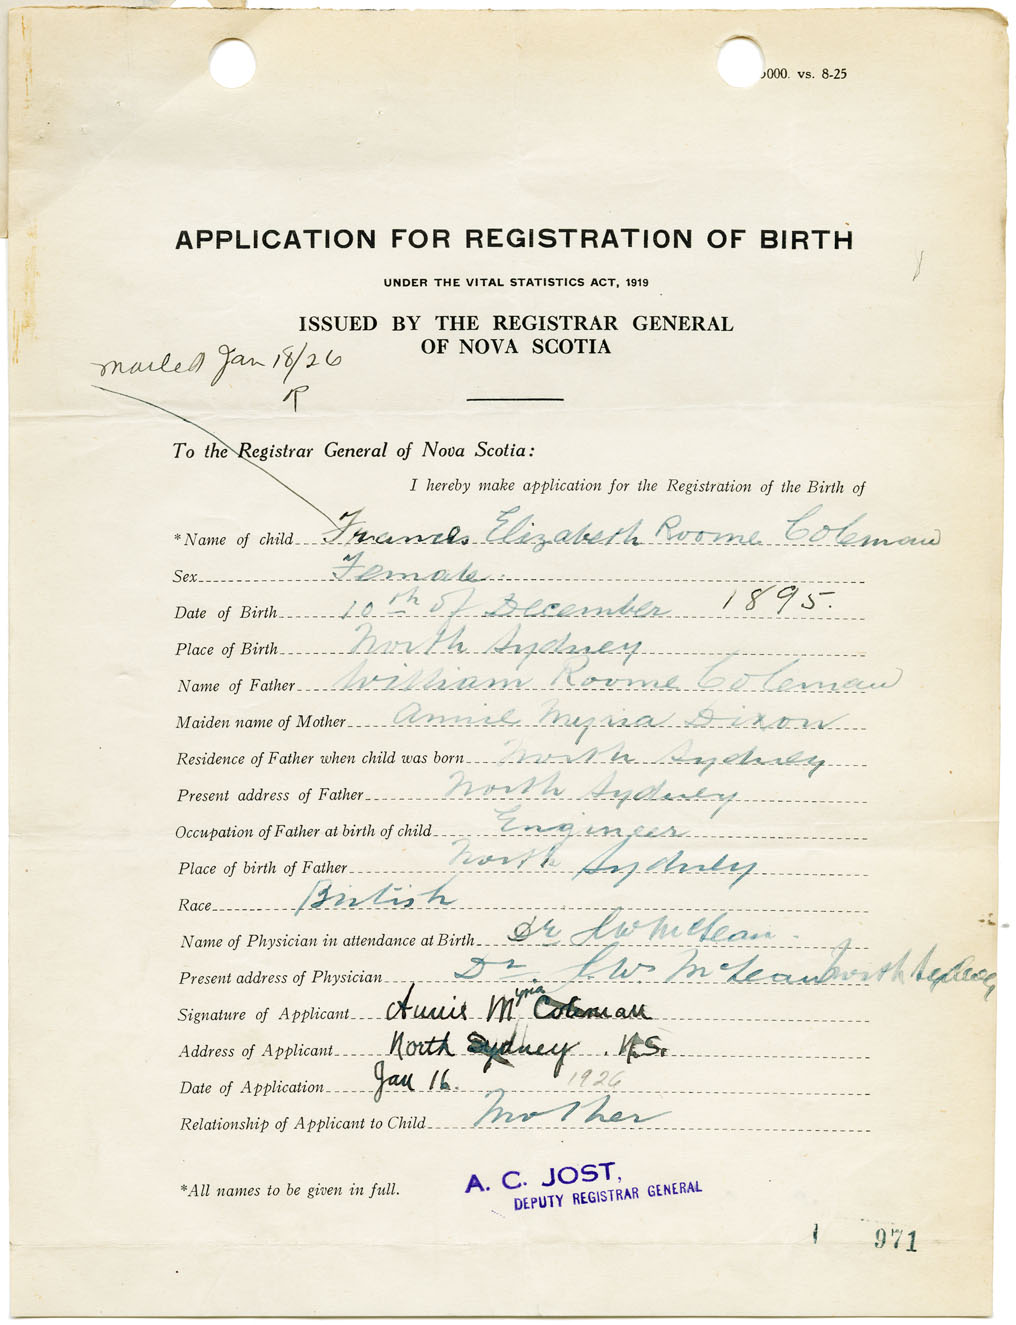 000. vs. 8-25
APPLICATION FOR REGISTRATION OF BIRTH
UNDER THE VITAL STATISTICS ACT, 1919
ISSUED BY THE REGISTRAR GENERAL
OF NOVA SCOTIA
mailed Jan 18/26
R
To the Registrar General of Nova Scotia:
I hereby make application for the Registration of the Birth of
*Name of child Francis Elizabeth Roome Coleman
Sex Female
Date of Birth 10th of December 1895.
Place of Birth North Sydney
Name of Father William Roome Coleman
Maiden name of Mother Annie Myria Dixon
Residence of Father when child was born North Sydney
Present address of Father North Sydney
Occupation of Father at birth of child Engineer
Place of birth of Father North Sydney
Race British
Name of Physician in attendance at Birth Dr McLean
Present address of Physician Dr. McLean North Sydney
Signature of Applicant Annie Myria Coleman
Address of Applicant North Sydney . N.S.
Date of Application Jan 16. 1926
Relationship of Applicant to Child Mother
*All names to be given in full.
A. C. JOST,
DEPUTY REGISTRAR GENERAL
971